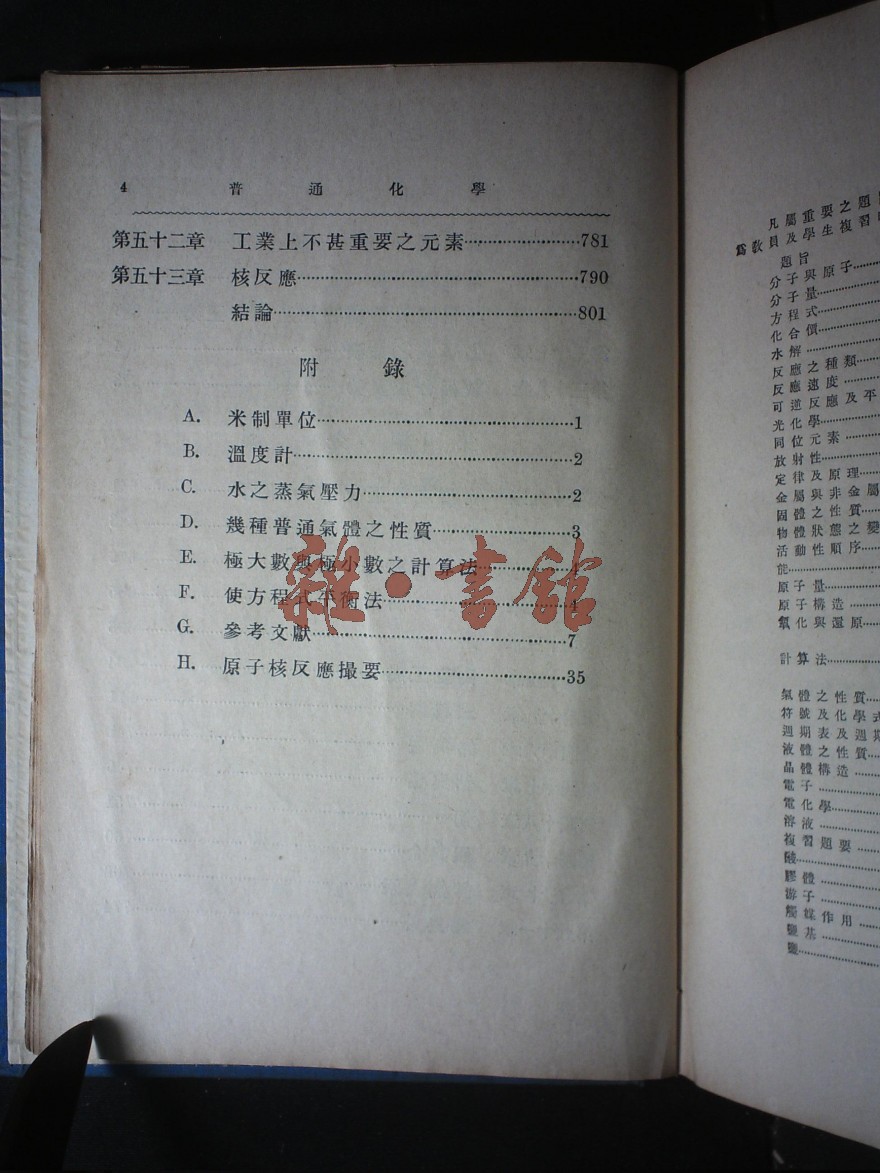 4 普通化學
第五十二章 工業上不甚重要之元素………………781
第五十三章 核反應………………790
結論………………801
附錄
A. 米制單位………………1
B. 溫度計………………2
C. 水之蒸氣壓力………………2
D. 幾種普通氣體之性質………………3
E. 極大數與極小數之計算法………………4
F. 使方程式平衡法………………4
G. 參考文獻………………7
H. 原子核反應撮要………………35
雜·書館
凡屬重要之題
爲敎員及學生複習
題旨
分子與原子
分子量
方程式
化合價
水解
反應之種類
反應速度
可逆反應及平
光化學
同位元素
放射性
定律及原理
金屬與非金屬
固體之性質
物體狀態之變
活動性順序
能
原子量
原子構造
氧化與還原
計算法
氣體之性質
符號及化學式
週期表及週期
液體之性質
晶體構造
電子
電化學
溶液
複習題要
酸
膠體
游子
觸媒作用
鹽基
鹽